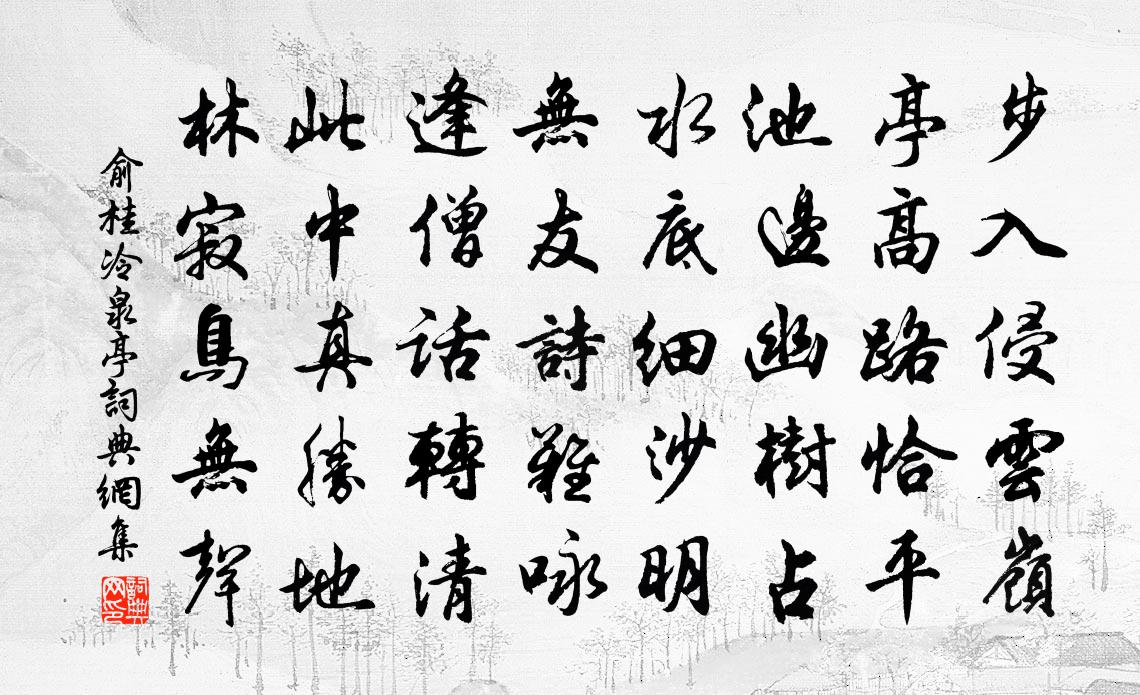 步入侵雲嶺
亭高路恰平
池邊幽樹占
水底細沙明
無友詩難咏
逢僧話轉清
此中真勝地
林寂鳥無聲
俞桂冷泉亭詞典網集
詞典網印